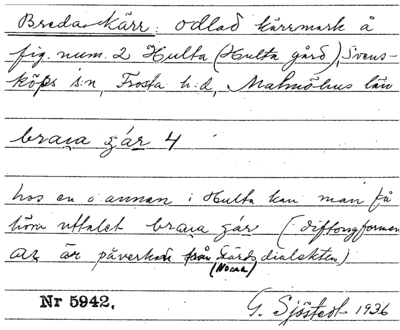 Breda kärr: odlad kärrmark å
fig. num. 2 Hulta (Hulta gård), Svens-
köps s:n, Frosta h:d, Malmöhus län
4
hos en o annan i Hulta kan man få
höra uttalet (diftongformen
är påverkad från dialekten)
(Norra)
Nr 5942.
G. Sjöstedt 1936